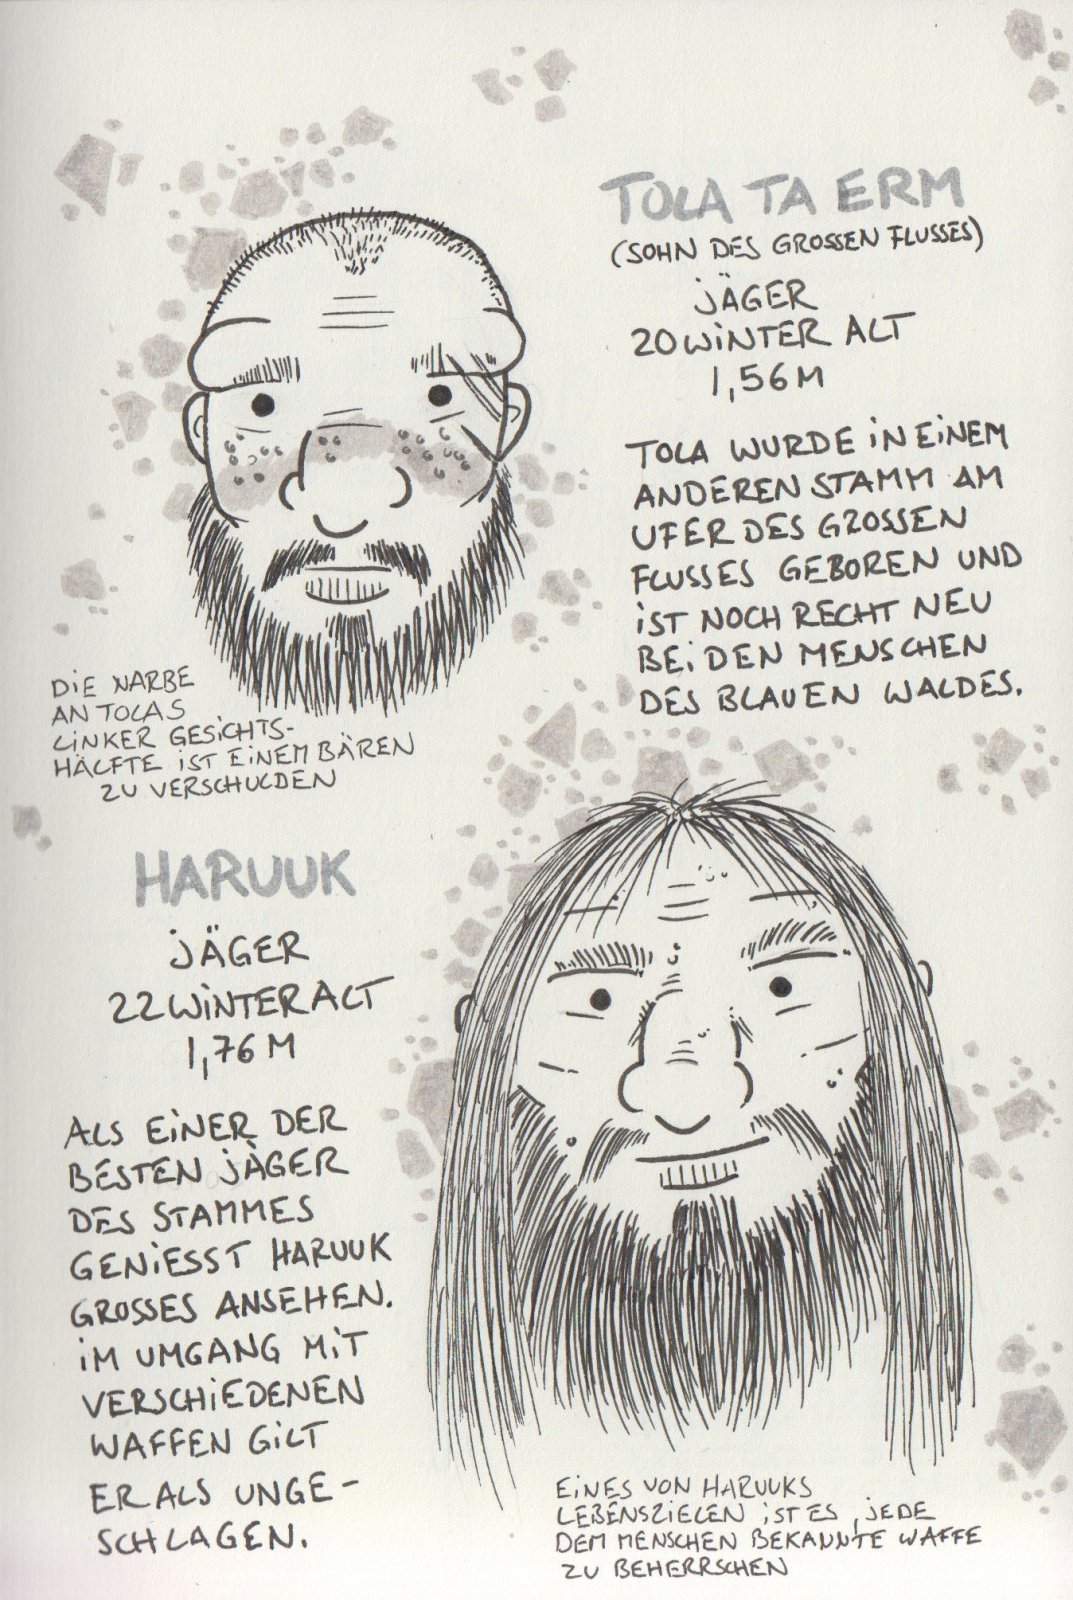 TOLA TA ERM
(SOHN DES GROSSEN FLUSSES)
JÄGER
20 WINTER ALT
1,56 M
TOLA WURDE IN EINEM
ANDEREN STAMM AM
UFER DES GROSSEN
FLUSSES GEBOREN UND
IST NOCH RECHT NEU
BEI DEN MENSCHEN
DES BLAUEN WALDES.
DIE NARBE
AN TOLAS
LINKER GESICHTS-
HÄLFTE IST EINEM BÄREN
ZU VERSCHULDEN
HARUUK
JÄGER
22 WINTER ALT
1,76 M
ALS EINER DER
BESTEN JÄGER
DES STAMMES
GENIESST HARUUK
GROSSES ANSEHEN.
IM UMGANG MIT
VERSCHIEDENEN
WAFFEN GILT
ER ALS UNGE-
SCHLAGEN.
EINES VON HARUUKS
LEBENSZIELEN IST ES, JEDE
DEM MENSCHEN BEKANNTE WAFFE
ZU BEHERRSCHEN